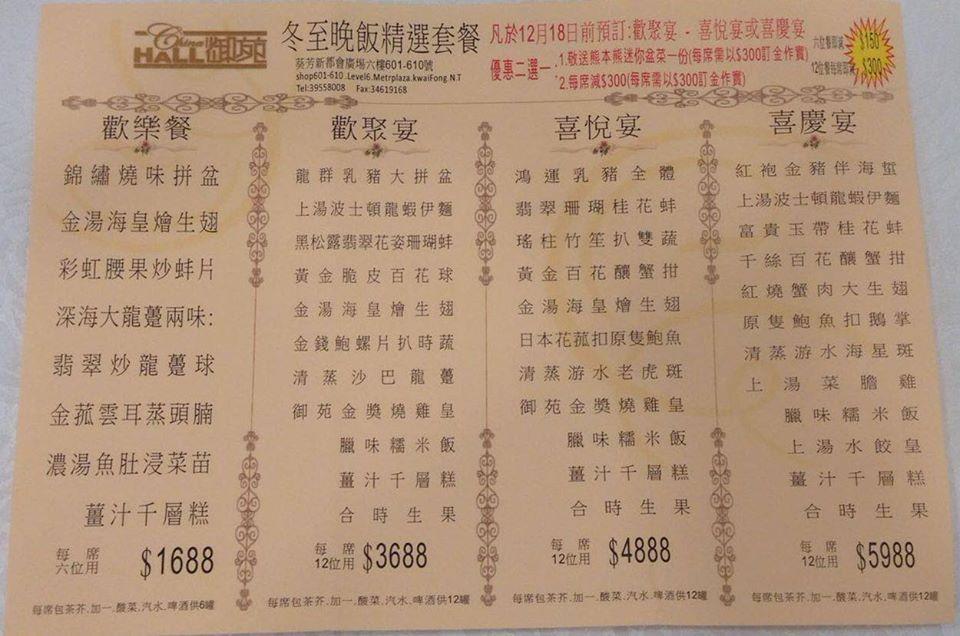 China
HALL 御苑
冬至晚飯精選套餐
葵芳新都會廣場六樓601-610號
shop601-610 .Level6.Metrplaza.kwaiFong N.T
Tel:39558008 Fax:34619168
凡於12月18日前預訂:歡聚宴 - 喜悅宴或喜慶宴
優惠二選一
.1.敬送熊本熊迷你盆菜一份(每席需以$300訂金作實)
2.每席減$300(每席需以$300訂金作實)
六位餐即減 $150
12位餐每席即減 $300
歡樂餐
錦繡燒味拼盆
金湯海皇燴生翅
彩虹腰果炒蚌片
深海大龍躉兩味:
翡翠炒龍躉球
金菰雲耳蒸頭腩
濃湯魚肚浸菜苗
薑汁千層糕
每席
六位用 $1688
每席包茶芥.加一.酸菜.汽水.啤酒供6罐
歡聚宴
龍群乳豬大拼盆
上湯波士頓龍蝦伊麵
黑松露翡翠花姿珊瑚蚌
黃金脆皮百花球
金湯海皇燴生翅
金錢鮑螺片扒時蔬
清蒸沙巴龍躉
御苑金獎燒雞皇
臘味糯米飯
薑汁千層糕
合時生果
每席
12位用 $3688
每席包茶芥.加一.酸菜.汽水.啤酒供12罐
喜悅宴
鴻運乳豬全體
翡翠珊瑚桂花蚌
瑤柱竹笙扒雙蔬
黃金百花釀蟹拑
金湯海皇燴生翅
日本花菰扣原隻鮑魚
清蒸游水老虎斑
御苑金獎燒雞皇
臘味糯米飯
薑汁千層糕
合時生果
每席
12位用 $4888
每席包茶芥.加一.酸菜.汽水.啤酒供12罐
喜慶宴
紅袍金豬伴海蜇
上湯波士頓龍蝦伊麵
富貴玉帶桂花蚌
千絲百花釀蟹拑
紅燒蟹肉大生翅
原隻鮑魚扣鵝掌
清蒸游水海星斑
上湯菜膽雞
臘味糯米飯
上湯水餃皇
薑汁千層糕
合時生果
每席
12位用 $5988
每席包茶芥.加一.酸菜.汽水.啤酒供12罐